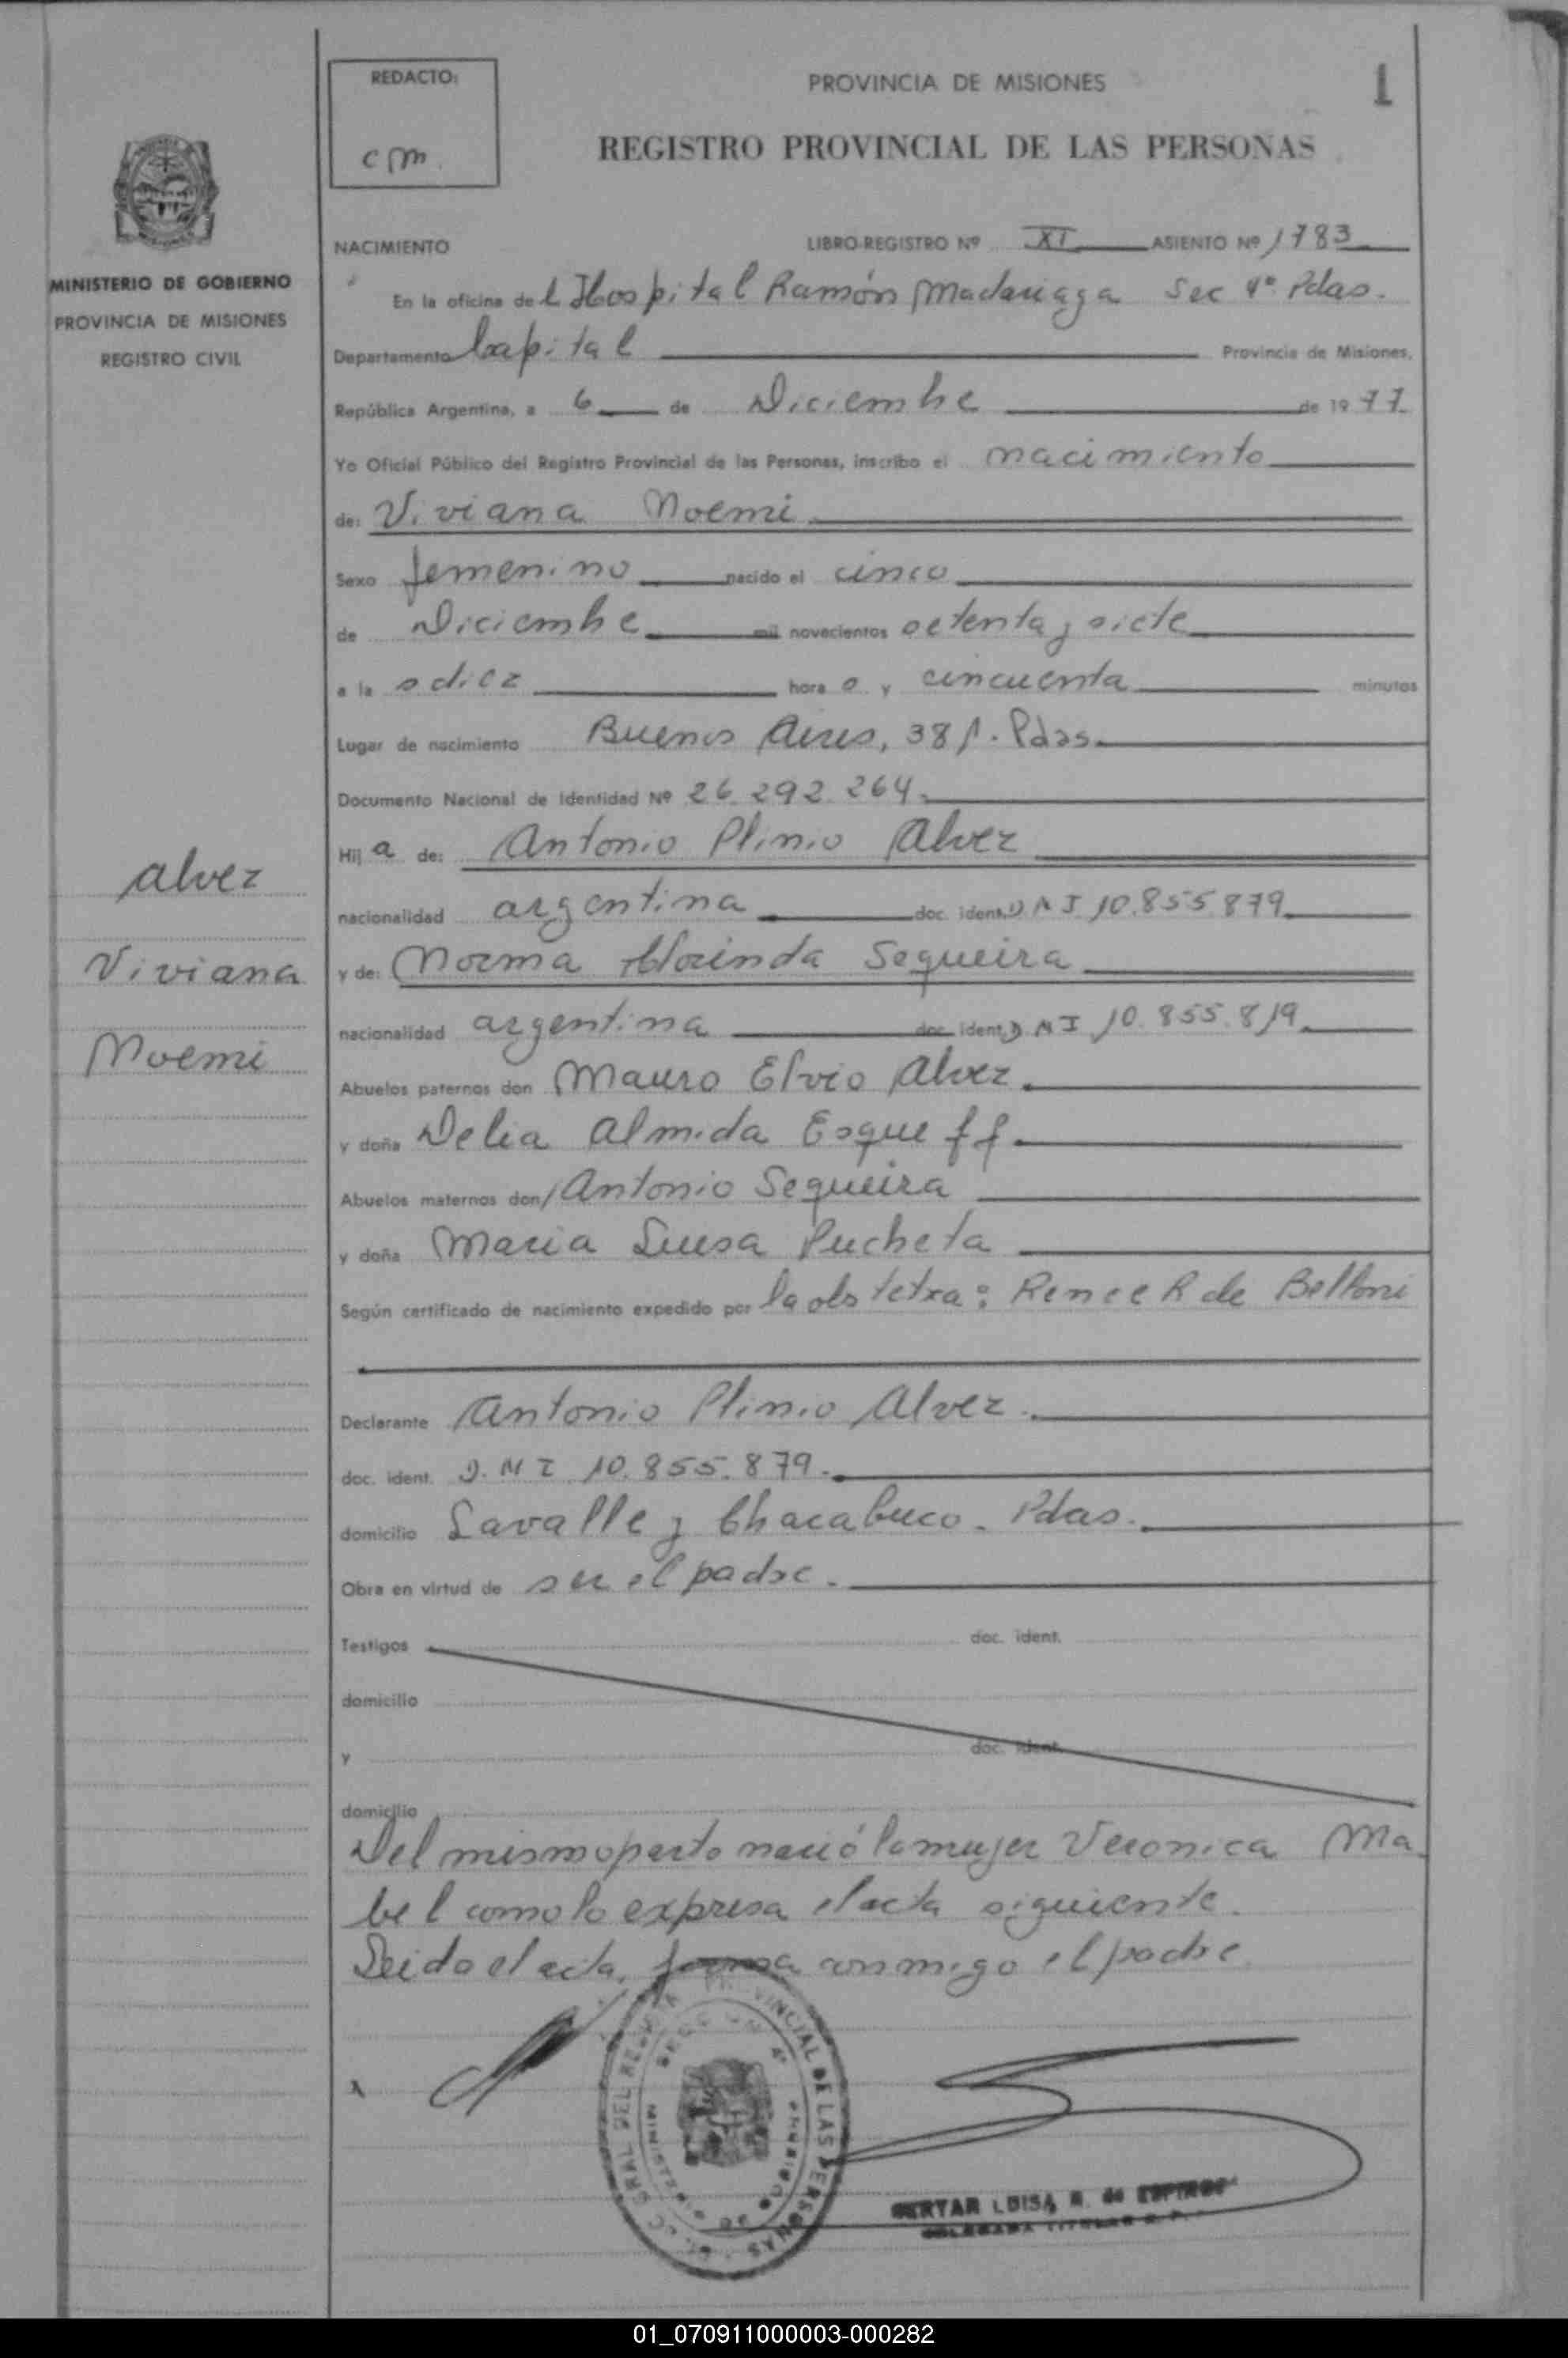 REDACTO:
cm.
PROVINCIA DE MISIONES
1
REGISTRO PROVINCIAL DE LAS PERSONAS
MINISTERIO DE GOBIERNO
PROVINCIA DE MISIONES
REGISTRO CIVIL
NACIMIENTO LIBRO-REGISTRO Nº XI ASIENTO Nº 1783
En la oficina del Hospital Ramón Madariaga Sec 4ª Pdas.
Departamento Capital Provincia de Misiones,
República Argentina, a 6 de Diciembre de 1977
Yo Oficial Público del Registro Provincial de las Personas, inscribo el nacimiento
de: Viviana Noemi
Sexo femenino nacido el cinco
de Diciembre mil novecientos setenta y siete
a las diez horas y cincuenta minutos
Lugar de nacimiento Buenos Aires, 38 Pdas.
Documento Nacional de Identidad Nº 26.292.264.
Hija de: Antonio Plinio Alvez
nacionalidad argentina doc. ident. DNI 10.855.879
y de: Norma Clorinda Sequeira
nacionalidad argentina doc. ident. DNI 10.855.819
Abuelos paternos don Mauro Elvio Alvez
y doña Delia Almida Esqueff.
Abuelos maternos don Antonio Sequeira
y doña Maria Luisa Pucheta
Según certificado de nacimiento expedido por la obstetra: Renee R de Belloni
Declarante Antonio Plinio Alvez.
doc. ident. D.N I 10.855.879.
domicilio Lavalle y Chacabuco. Pdas.
Obra en virtud de ser el padre.
Testigos doc. ident.
domicilio
y doc. ident.
domicilio
Del mismo parto nació la mujer Veronica Ma
bel como lo expresa el acta siguiente.
Leida el acta, firma conmigo el padre.
Alvez
Viviana
Noemi
PROVINCIAL DE LAS PERSONAS
LUISA R. de
01_070911000003-000282